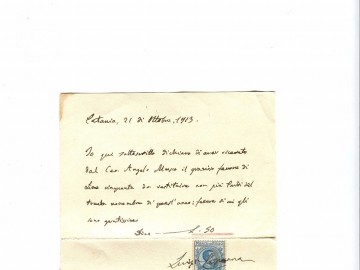 Catania, 21 di Ottobre, 1913.
Io qui sottoscritto dichiaro di aver ricevuto
dal Cav. Angelo il grazioso favore di
Lire cinquanta da restituire non più tardi del
di quest'anno; favore di cui gli
sono gratissimo
Dico L. 50
Luigi